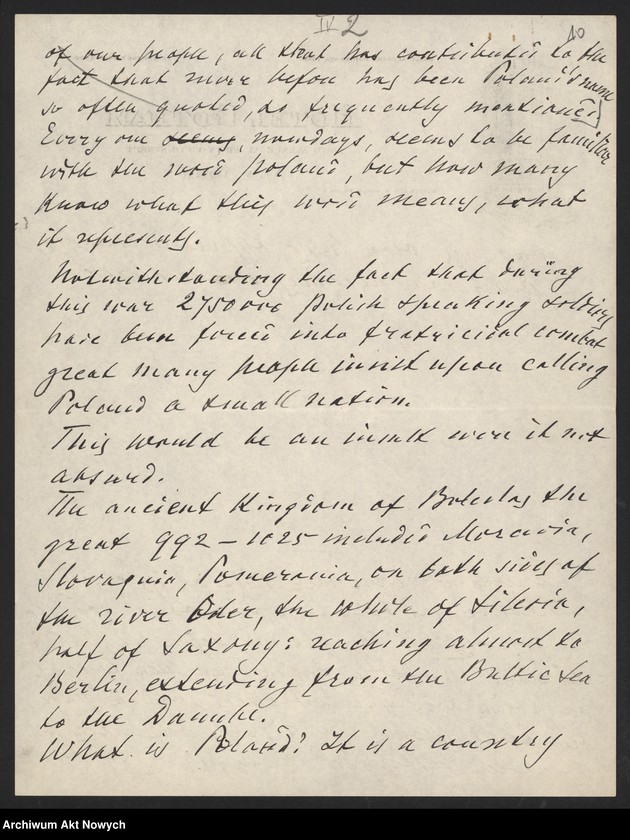 IV 2
10
of our people, all that has contributed to the
fact that never before has been Poland's name
so often quoted, so frequently mentioned.
Every one seems, nowdays, seems to be familiar
with the word Poland, but how many
know what this word means, what
it represents.
Notwithstanding the fact that during
this war 2750000 Polish speaking soldiers
have been forced into fratricidal combat
great many people insist upon calling
Poland a small nation.
This would be an insult were it not
absurd.
The ancient Kingdom of Boleslas the
great 992 – 1025 included Moravia,
Slovaquia, Pomerania, on both sides of
the river Oder, the whole of Silesia,
half of Saxony: reaching almost to
Berlin, extending from the Baltic Sea
to the Danube.
What is Poland? It is a country
Archiwum Akt Nowych